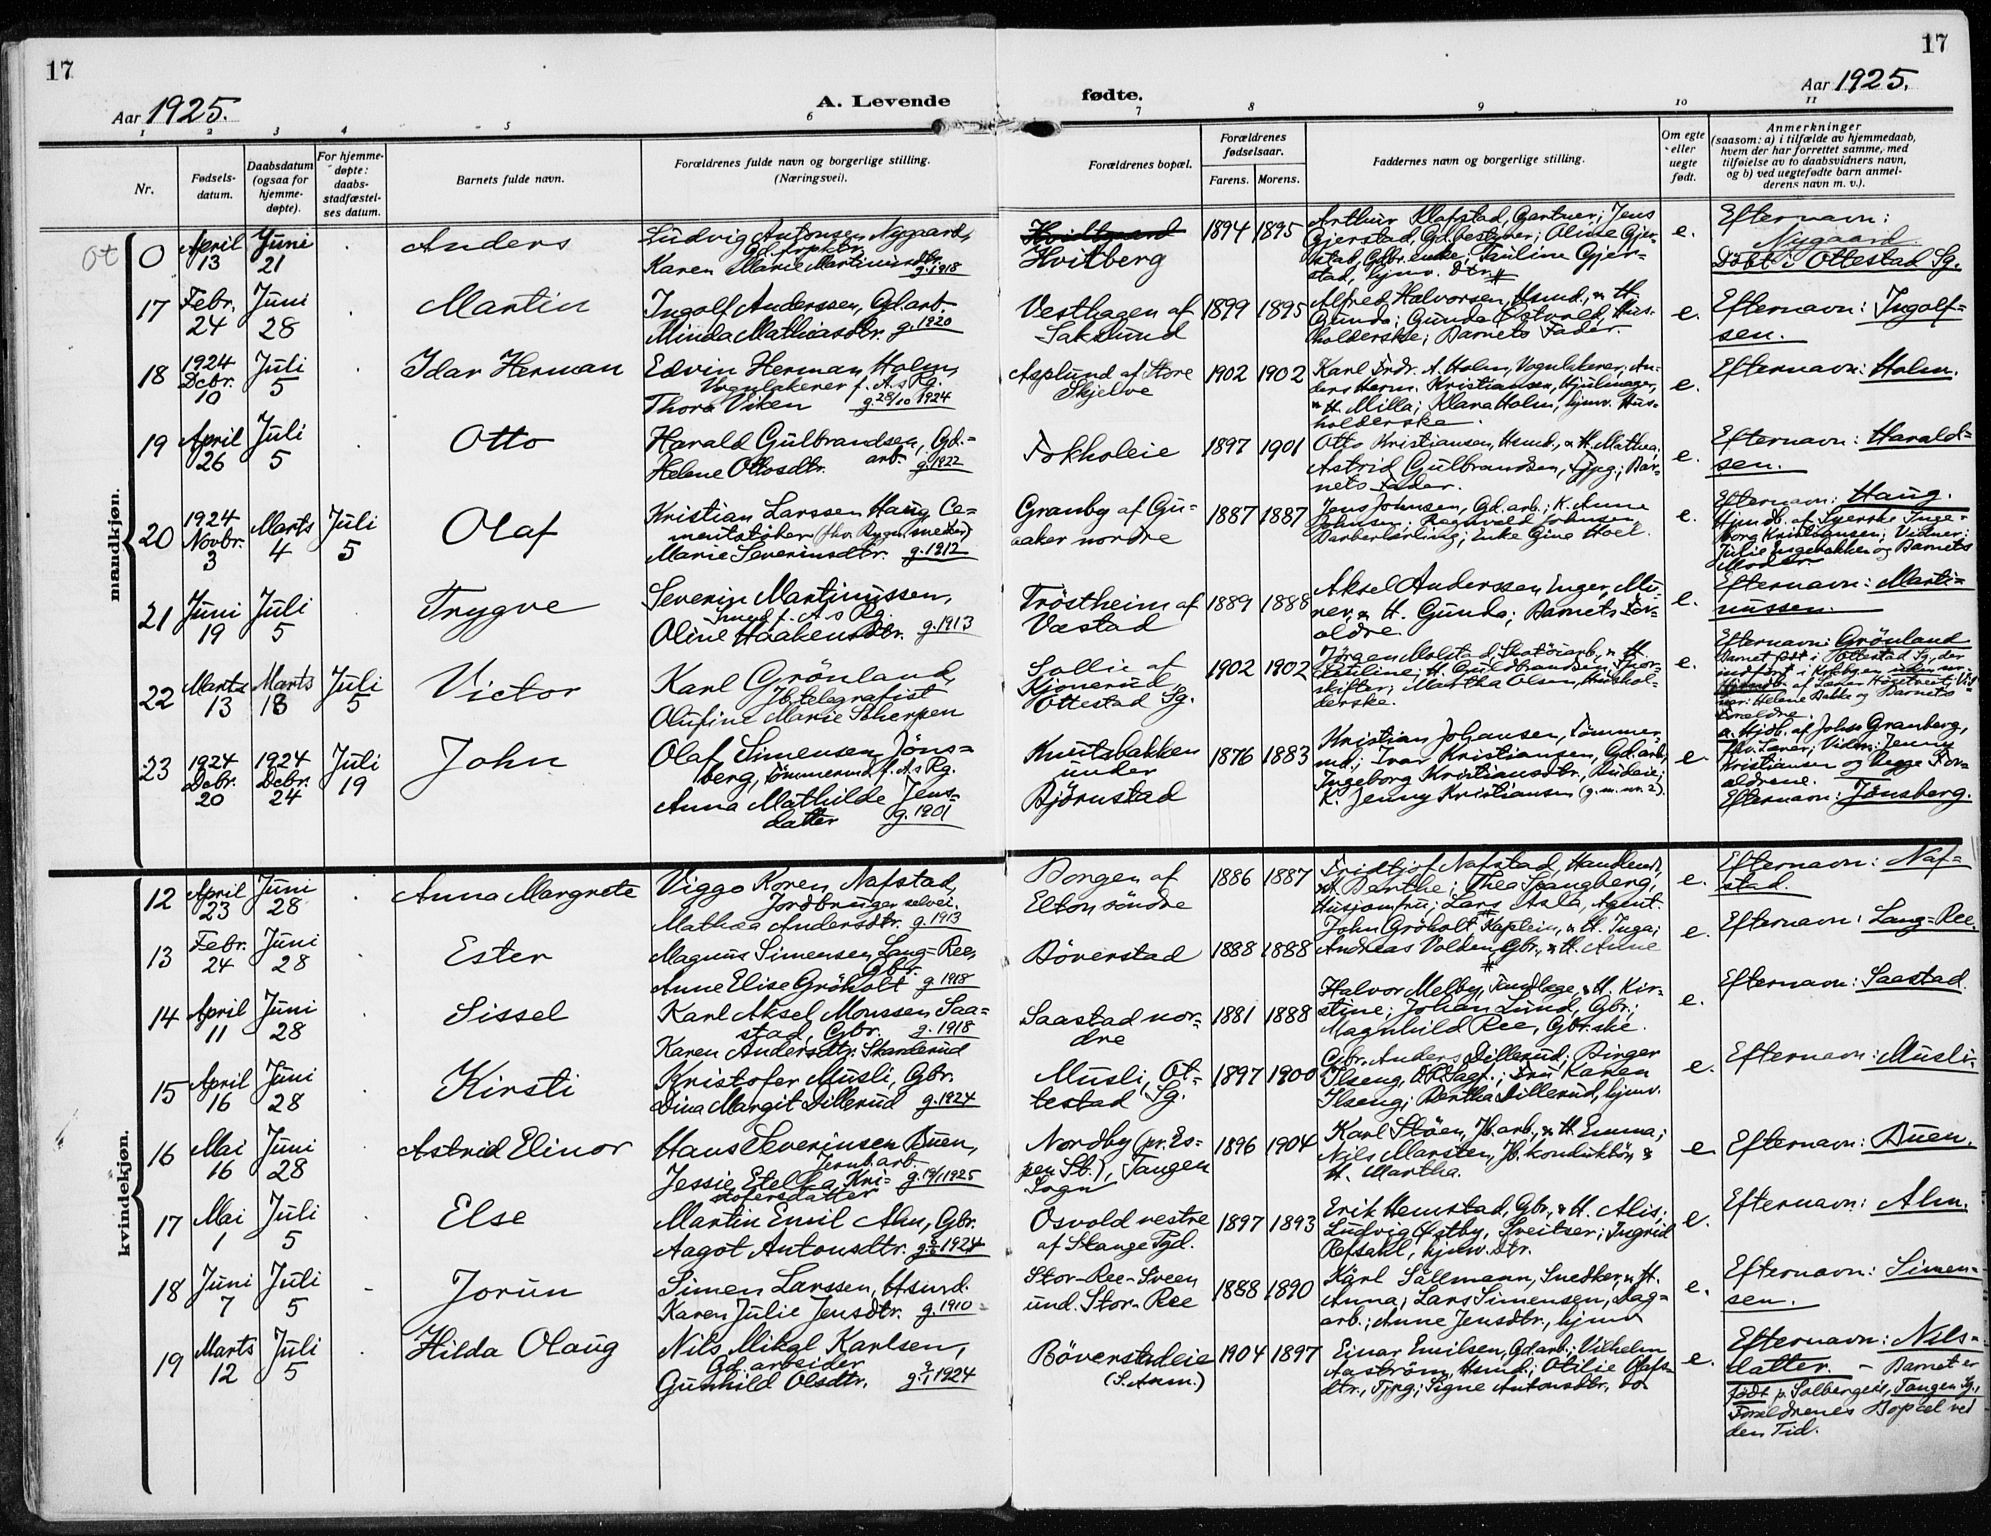 17
17
Aar 1925.
A. Levende
fødte.
Aar 1925.
1 2 3 4 5 6 7 8 9 10 11
Nr.
Fødsels-
datum.
Daabsdatum
(ogsaa for
hjemme-
døpte).
For hjemme-
døpte:
daabs-
stadfæstel-
ses datum.
Barnets fulde navn.
Forældrenes fulde navn og borgerlige stilling.
(Næringsvei).
Forældrenes bopæl.
Forældrenes
fødselsaar.
Farens. Morens.
Faddernes navn og borgerlige stilling.
Om egte
eller
uegte
født.
Anmerkninger
(saasom: a) i tilfælde av hjemmedaab,
hvem der har forrettet samme, med
tilføielse av to daabsvidners navn,
og b) ved uegtefødte barn anmel-
derens navn m. v.).
mandkjøn.
Ot 0
April
13
Juni
21
Anders
Ludvig Antonsen Nygaard,
Karen Marie Martinusdtr.
g. 1918
Hvitberg
1894 1895
Arthur Klafstad, Gartner; Jens
Gjerstad, Gd.bestyrer; Oline Gjer-
stad, Gbr. enke; Pauline Gjer-
stad, hjmv. dtr.
e.
Efternavn:
Nygaard
Döbt i Ottestad Sg.
17
Febr.
24
Juni
28
Martin
Ingolf Anderssen, Gd.arb.
Minda Mathiasdtr. g. 1920
Vesthagen af
Sakslund
1899 1895
Alfred Halvorsen, Hsmd., & H.
Gunda; Gunda Østvold, Hus-
holderske; Barnets Fader.
e.
Efternavn: Ingolf-
sen.
18
1924
Dcbr.
10
Juli
5
Idar Herman
Edvin Herman Holm,
Vognlakerer f. A s Rg.
Thora Viken g. 28/10 1924
Asplund af Store
Skjelve
1902 1902
Karl Frdr. A. Holm, Vognlakerer, An-
ders Herm. Kristiansen, Hjulmager,
& H. Milla; Klara Holm, hjmv. Hus-
holderske.
e.
Efternavn: Holm.
19
April
26
Juli
5
Otto
Harald Gulbrandsen, Gd.-
arb.
Helene Ottosdtr. g. 1922
Fokholeie
1897 1901
Otto Kristiansen, Hsmd, & H. Mathea;
Astrid Gulbrandsen, Tjpg; Bar-
nets Fader.
e.
Efternavn: Harald-
sen.
20
1924
Novbr.
3
Marts
4
Juli
5
Olaf
Kristian Larssen Haug Ce-
mentstøber (fhv. Bygn.snekker)
Marie Severinsdtr. g. 1912
Granby af Gu-
aaker nordre
1887 1887
Jens Johnsen, Gd.arb.; K. Anne
Johnsen; Ragnvald Johnsen,
Barberlærling; Enke Gina Hoel.
e.
Efternavn: Haug.
Hjmdb. af Syerske Inge-
borg Kristiansen; Vidner:
Julie Engebakken og Barnets
Moder
21
Juni
19
Juli
5
Trygve
Severin Martinussen,
Smed f. A s Rg.
Oline Haakensdtr. g. 1913
Tröstheim af
Væstad
1889 1888
Aksel Anderssen Enger, Mu-
rer, & H. Gunda; Barnets For-
ældre.
e.
Efternavn: Marti-
nussen.
22
Marts
13
Marts
18
Juli
5
Victor
Karl Grönland,
Jb.telegrafist
Olufine Marie Scherpen
Sollie af
Kjonerud,
Ottestad Sg.
1902 1902
Jørgen Molstad, Skotöiarb., & H.
Pauline; H. Guldbrandsen, Spor-
skifter; Martha Olsen, Hushol-
derske.
e.
Efternavn: Grönland
23
1924
Dcbr.
20
1924
Dcbr.
24
Juli
19
John
Olaf Simensen Jöns-
berg, Tömmermd f. A s Rg.
Anna Mathilde Jens-
datter g. 1901
Knutsbakken
under
Björnstad
1876 1883
Kristian Johansen, Tömmer-
md; Ivar Kristiansen, Gd.arb;
Ingeborg Kristiansdtr., Budeie;
K. Jenny Kristiansen (g. m. nr. 2).
e.
a. Hjdb. af Johs Granberg,
fhv. Lærer; Vidn: Jenny
Kristiansen og Begge For-
ældrene.
Efternavn: Jönsberg.
kvindekjøn.
12
April
23
Juni
28
Anna Margrete
Viggo Koren Nafstad,
Jordbruger selvei.
Mathea Andersdtr. g. 1913
Borgen af
Elton söndre
1886 1887
Fridtjof Nafstad, Handlend,
& H. Barthe; Thea Spangberg,
Husjomfru; Lars Asla, Agent.
e.
Efternavn: Naf-
stad.
13
Febr.
24
Juni
28
Ester
Magnus Simensen Lang-Ree,
Gbr.
Anne Elise Gröholt g. 1918
Böverstad
1888 1888
John Gröholt, Kaptein, & H. Inga;
Andreas Volden, Gbr., & H. Anne
e.
Efternavn: Lang-Ree.
14
April
11
Juni
28
Sissel
Karl Aksel Monssen Saa-
stad, Gbr. g. 1918
Karen Andersdtr. Skarderud
Saastad nor-
dre
1881 1888
Halvor Melby, Tandlæge, & H. Kir-
stine; Johan Lund, Gbr;
Magnhild Ree, Gbr.ske.
e.
Efternavn: Saastad.
15
April
16
Juni
28
Kirsti
Kristofer Musli, Gbr.
Dina Margit Dillerud g. 1924
Musli, Ot-
testad Sg.
1897 1900
Gbr. Anders Dillerud; Birger
Ilseng, O.R.Sagf.; Fru Karen
Ilseng; Bertha Dillerud, hjmv.
e.
Efternavn: Musli.
16
Mai
16
Juni
28
Astrid Elinor
Hans Severinsen Buen,
Jernb.arb.
Jessie Etelka Kri- g. 19/1 1925
stofersdatter
Nordby (pr. Es-
pen St.), Tangen
Sogn
1896 1904
Karl Stöen, Jb. arb., & H. Emma;
Nils Marsten, Jb. konduktör, &
H. Martha.
e.
Efternavn: Buen.
17
Mai
1
Juli
5
Else
Martin Emil Alm, Gbr.
Aagot Antonsdtr. g. 1924
Osvold vestre
af Stange Pgd.
1897 1893
Erik Hemstad, Gbr., & H. Alis;
Ludvig Østby, Sveitser; Ingrid
Refsahl, hjmv. Dtr.
e.
Efternavn: Alm.
18
Juni
7
Juli
5
Jorun
Simen Larssen, Hsmd.
Karen Julie Jensdtr. g. 1910
Stor-Ree-Sveen
und. Stor-Ree
1888 1890
Karl Sällmann, Snedker, & H.
Anna; Lars Simensen, Dag-
arb.; Anne Jensdtr., hjmv
e.
Efternavn: Simen-
sen.
19
Marts
12
Juli
5
Hilda Olaug
Nils Mikal Karlsen,
Gd.arbeider
Gunhild Olsdtr. g. 1924
Böverstadeie
(S. Anm.)
1904 1897
Einar Emilsen, Gd.arb.; Vilhelm
Aaström, Hsmd; Otilie Olafs-
dtr., Tjpg; Signe Antonsdtr., do
e.
Efternavn: Nils-
datter. - Barnet er
födt p. Solbergeie, Tangen Sg.,
Forældrenes Bopæl ved
den Tid.